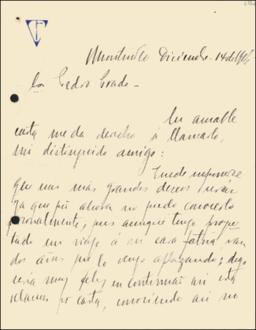 Montevideo Diciembre 14 del
Su amable
carta me da derecho á llamarlo,
mi distinguido amigo:
Puede suponerse
que uno mis grandes deseos
ya que por ahora no puedo conocerlo
personalmente, pues aunque tengo proyec
tado un viaje á mi cara patria van
dos años que lo vengo aplazando; digo
sería muy feliz en continuar así esta
relacion por carta, conociendo así no